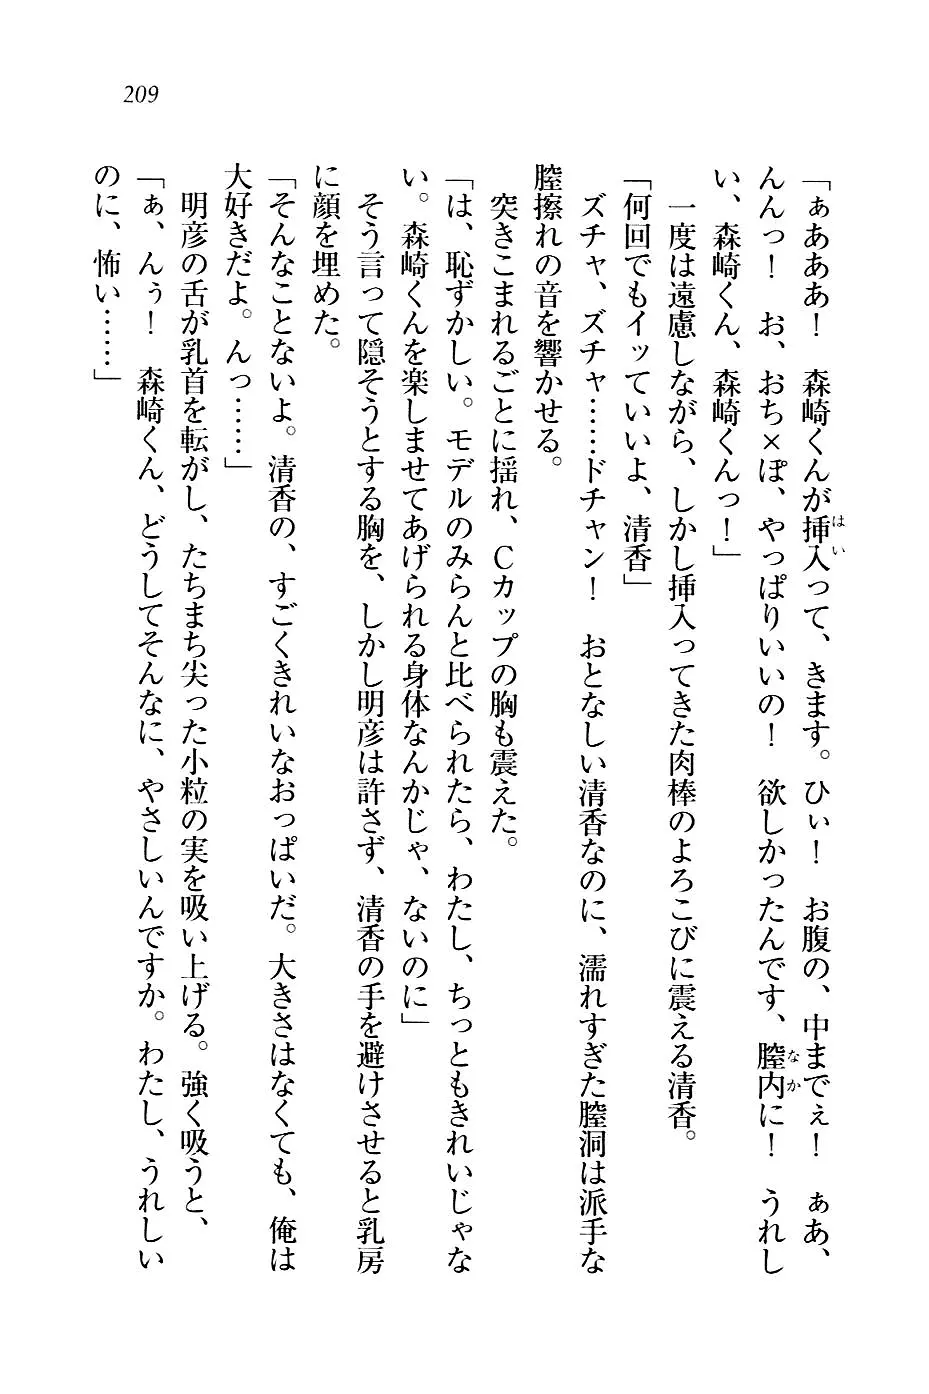 209
「ぁあああ！　森崎くんが挿入って、きます。ひぃ！　お腹の、中までぇ！　ぁあ、
んんっ！　お、おち×ぽ、やっぱりいいの！　欲しかったんです、膣内に！　うれし
い、森崎くん、森崎くんっ！」
　一度は遠慮しながら、しかし挿入ってきた肉棒のよろこびに震える清香。
「何回でもイッていいよ、清香」
　ズチャ、ズチャ……ドチャン！　おとなしい清香なのに、濡れすぎた膣洞は派手な
膣擦れの音を響かせる。
　突きこまれるごとに揺れ、Cカップの胸も震えた。
「は、恥ずかしい。モデルのみらんと比べられたら、わたし、ちっともきれいじゃな
い。森崎くんを楽しませてあげられる身体なんかじゃ、ないのに」
　そう言って隠そうとする胸を、しかし明彦は許さず、清香の手を避けさせると乳房
に顔を埋めた。
「そんなことないよ。清香の、すごくきれいなおっぱいだ。大きさはなくても、俺は
大好きだよ。んっ……」
　明彦の舌が乳首を転がし、たちまち尖った小粒の実を吸い上げる。強く吸うと、
「ぁ、んぅ！　森崎くん、どうしてそんなに、やさしいんですか。わたし、うれしい
のに、怖い……」
はい
なか